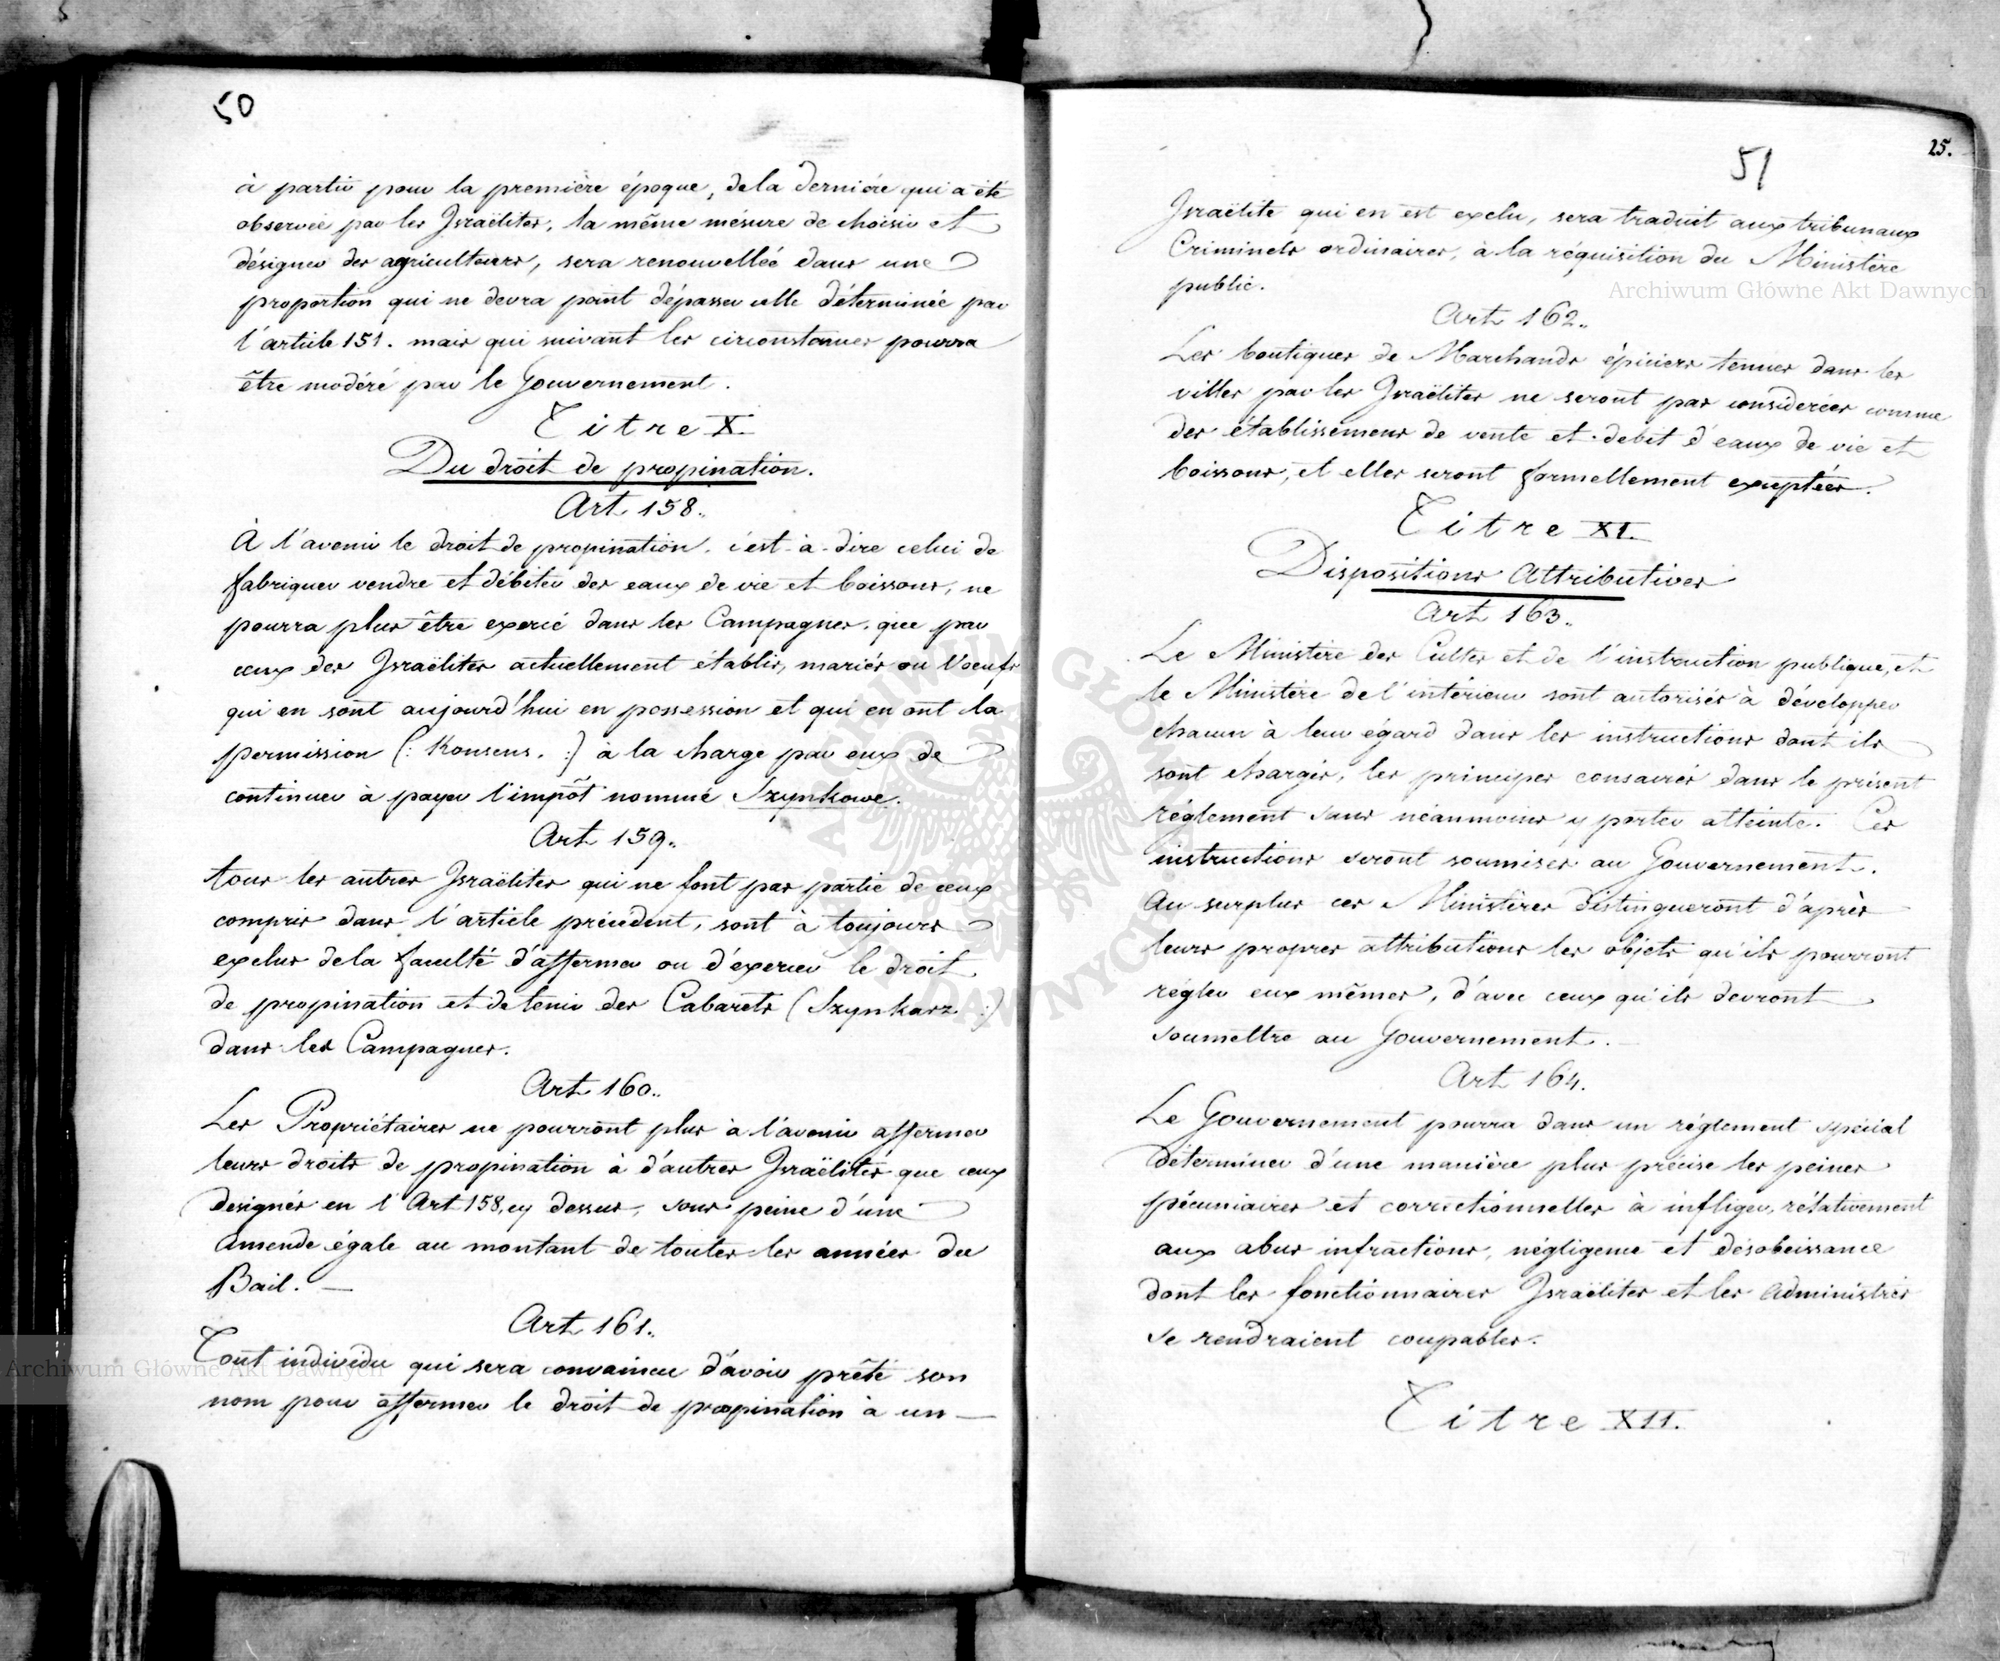 50
à partir pour la première époque, de la derniére qui a été
observée par les Israëlites, la même mésure de choisir et
désigner des agriculteurs, sera renouvellée dans une
proportion qui ne devra point dépasser celle déterminée par
l'article 151. mais qui suivant les circonstances pourra
être modéré par le Gouvernement.
Titre X.
Du droit de propination.
Art. 158.
À l'avenir le droit de propination, c'est-à-dire celui de
fabriquer vendre et débiter des eaux de vie et boissons, ne
pourra plus être exercé dans les Campagnes, que par
ceux des Israëlites actuellement établis, mariés ou Voeufs
qui en sont aujourd'hui en possession et qui en ont la
permission (: Konsens. :) à la charge par eux de
continuer à payer l'impôt nommé Szynkowe.
Art. 159.
tous les autres Israëlites qui ne font pas partie de ceux
compris dans l'article précedent, sont à toujours
exclus de la faculté d'affermer ou d'éxercer le droit
de propination et de tenir des Cabarets (Szynkarz :)
dans les Campagnes.
Art. 160.
Les Propriétaires ne pourront plus à l'avenir affermer
leurs droits de propination à d'autres Israëlites que ceux
designés en l'Art 158, cy dessus, sous peine d'une
amende égale au montant de toutes les années du
Bail. —
Art. 161.
Tout individu qui sera convaincu d'avoir prêté son
nom pour affermer le droit de propination à un —
25.
51
Israëlite qui en est exclu, sera traduit aux tribunaux
Criminels ordinaires, à la réquisition du Ministère
public.
Art. 162.
Les boutiques de Marchands épiciers tenues dans les
villes par les Israëlites ne seront pas considerées comme
des établissemens de vente et debit d'eaux de vie et
boissons, et elles seront formellement exceptées.
Titre XI.
Dispositions Attributives
Art. 163.
Le Ministère des Cultes et de l'instruction publique, et
le Ministère de l'intérieur sont autorisés à développer
chacun à leur égard dans les instructions dont ils
sont chargés, les principes consacrés dans le présent
réglement sans néanmoins y porter atteinte. Ces
instructions seront soumises au Gouvernement.
Au surplus ces Ministères distingueront d'après
leurs propres attributions les objets qu'ils pourront
régler eux mêmes, d'avec ceux qu'ils devront
soumettre au Gouvernement. —
Art. 164.
Le Gouvernement pourra dans un réglement spécial
déterminer d'une manière plus précise les peines
pécuniaires et correctionnelles à infliger, rélativement
aux abus infractions, négligence et désobeissance
dont les fonctionnaires Israëlites et les Administrés
se rendraient coupables.
Titre XII.
Archiwum Główne Akt Dawnych
Archiwum Główne Akt Dawnych
ARCHIWUM GŁÓWNE AKT DAWNYCH